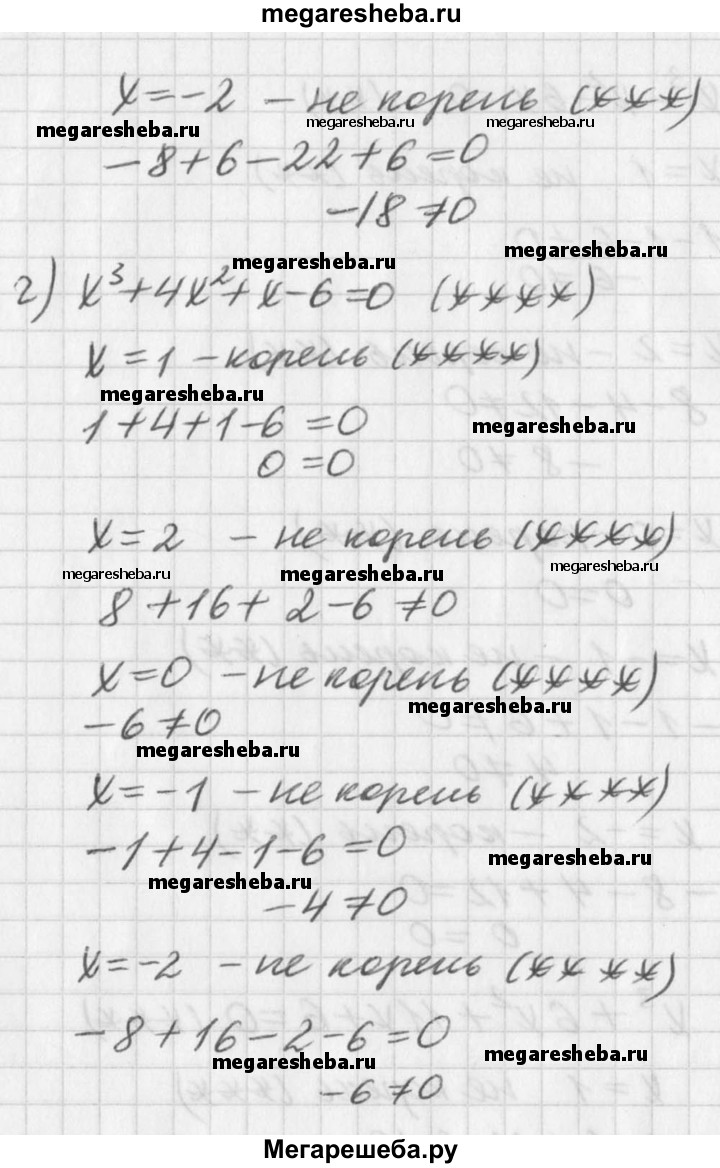 megaresheba.ru
x = -2 - не корень (***)
megaresheba.ru megaresheba.ru megaresheba.ru
-8+6-22+6=0
-18≠0
megaresheba.ru
megaresheba.ru
г) x³+4x²+x-6=0 (****)
x = 1 - корень (****)
megaresheba.ru
1+4+1-6=0
megaresheba.ru
0=0
x = 2 - не корень (****)
megaresheba.ru megaresheba.ru megaresheba.ru
8+16+2-6≠0
x=0 - не корень (****)
megaresheba.ru
-6≠0
megaresheba.ru
x=-1 - не корень (****)
-1+4-1-6=0
megaresheba.ru
megaresheba.ru
-4≠0
x=-2 - не корень (****)
-8+16-2-6=0
megaresheba.ru megaresheba.ru
-6≠0
Мегарешеба.ру